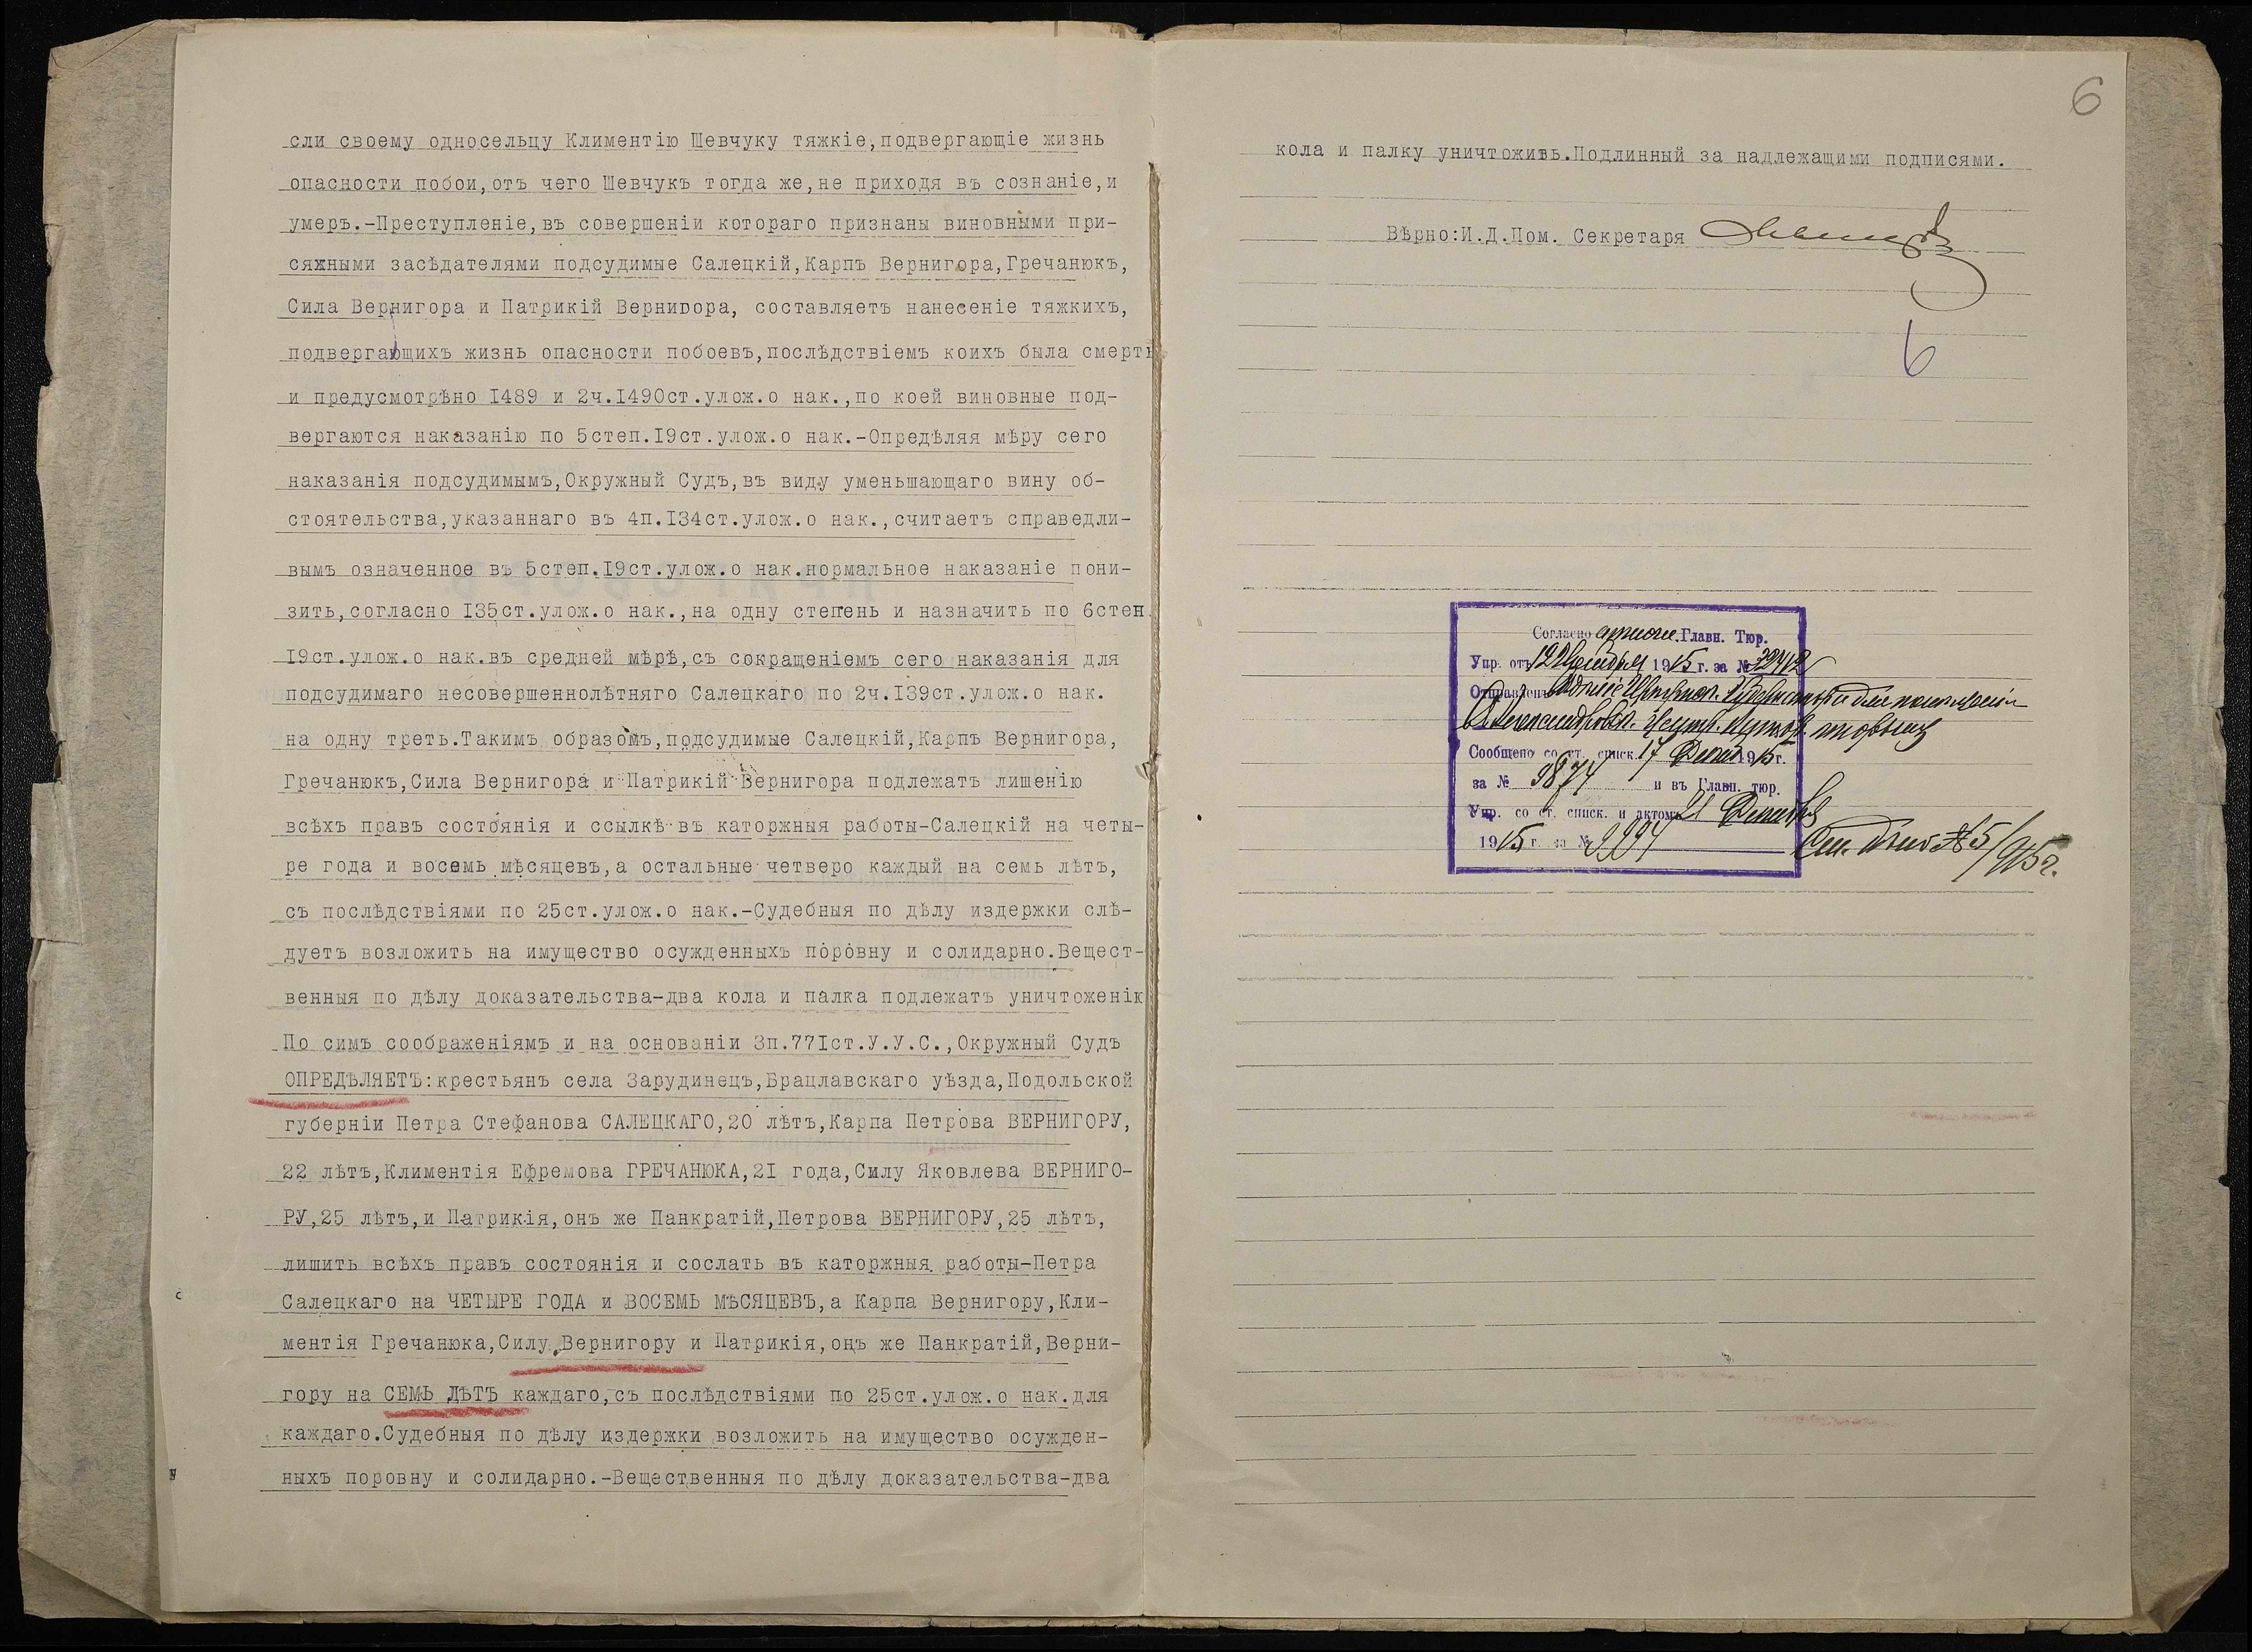 сли своему односельцу Климентію Шевчуку тяжкіе,подвергающіе жизнь
опасности побои,отъ чего Шевчукъ тогда же,не приходя въ сознаніе,и
умеръ.-Преступленіе,въ совершеніи котораго признаны виновными при-
сяжными засѣдателями подсудимые Салецкій,Карпъ Вернигора,Гречанюкъ,
Сила Вернигора и Патрикій Вернивора, составляетъ нанесеніе тяжкихъ,
подвергающихъ жизнь опасности побоевъ,послѣдствіемъ коихъ была смерть
и предусмотрѣно I489 и 2ч.I490ст.улож.о нак.,по коей виновные под-
вергаются наказанію по 5степ.I9ст.улож.о нак.-Опредѣляя мѣру сего
наказанія подсудимымъ,Окружный Судъ,въ виду уменьшающаго вину об-
стоятельства,указаннаго въ 4п.I34ст.улож.о нак.,считаетъ справедли-
вымъ означенное въ 5степ.I9ст.улож.о нак.нормальное наказаніе пони-
зить,согласно I35ст.улож.о нак.,на одну степень и назначить по 6степ.
I9ст.улож.о нак.въ средней мѣрѣ,съ сокращеніемъ сего наказанія для
подсудимаго несовершеннолѣтняго Салецкаго по 2ч.I39ст.улож.о нак.
на одну треть.Такимъ образомъ,подсудимые Салецкій,Карпъ Вернигора,
Гречанюкъ,Сила Вернигора и Патрикій Вернигора подлежатъ лишенію
всѣхъ правъ состоянія и ссылкѣ въ каторжныя работы-Салецкій на четы-
ре года и восемь мѣсяцевъ,а остальные четверо каждый на семь лѣтъ,
съ послѣдствіями по 25ст.улож.о нак.-Судебныя по дѣлу издержки слѣ-
дуетъ возложить на имущество осужденныхъ поровну и солидарно.Вещест-
венныя по дѣлу доказательства-два кола и палка подлежатъ уничтоженію
По симъ соображеніямъ и на основаніи 3п.77Iст.У.У.С.,Окружный Судъ
ОПРЕДѢЛЯЕТЪ:крестьянъ села Зарудинецъ,Брацлавскаго уѣзда,Подольской
губерніи Петра Стефанова САЛЕЦКАГО,20 лѣтъ,Карпа Петрова ВЕРНИГОРУ,
22 лѣтъ,Климентія Ефремова ГРЕЧАНЮКА,2I года,Силу Яковлева ВЕРНИГО-
РУ,25 лѣтъ,и Патрикія,онъ же Панкратій,Петрова ВЕРНИГОРУ,25 лѣтъ,
лишить всѣхъ правъ состоянія и сослать въ каторжныя работы-Петра
Салецкаго на ЧЕТЫРЕ ГОДА и ВОСЕМЬ МѢСЯЦЕВЪ,а Карпа Вернигору,Кли-
ментія Гречанюка,Силу Вернигору и Патрикія,онъ же Панкратій,Верни-
гору на СЕМЬ ЛѢТЪ каждаго,съ послѣдствіями по 25ст.улож.о нак.для
каждаго.Судебныя по дѣлу издержки возложить на имущество осужден-
ныхъ поровну и солидарно.-Вещественныя по дѣлу доказательства-два
6
кола и палку уничтожить.Подлинный за надлежащими подписями.
Вѣрно:И.Д.Пом. Секретаря
6
Согласно Главн. Тюр.
Упр. отъ 1915 г. за №
Отправленъ
Александровск. Центр. тюрьму
Сообщено со ст. списк. 17 1915 г.
за № 9874 и въ Главн. тюр.
Упр. со ст. списк. и актомъ 21 Декабря
1915 г. за № 9994
См. дѣло № 5/915 г.